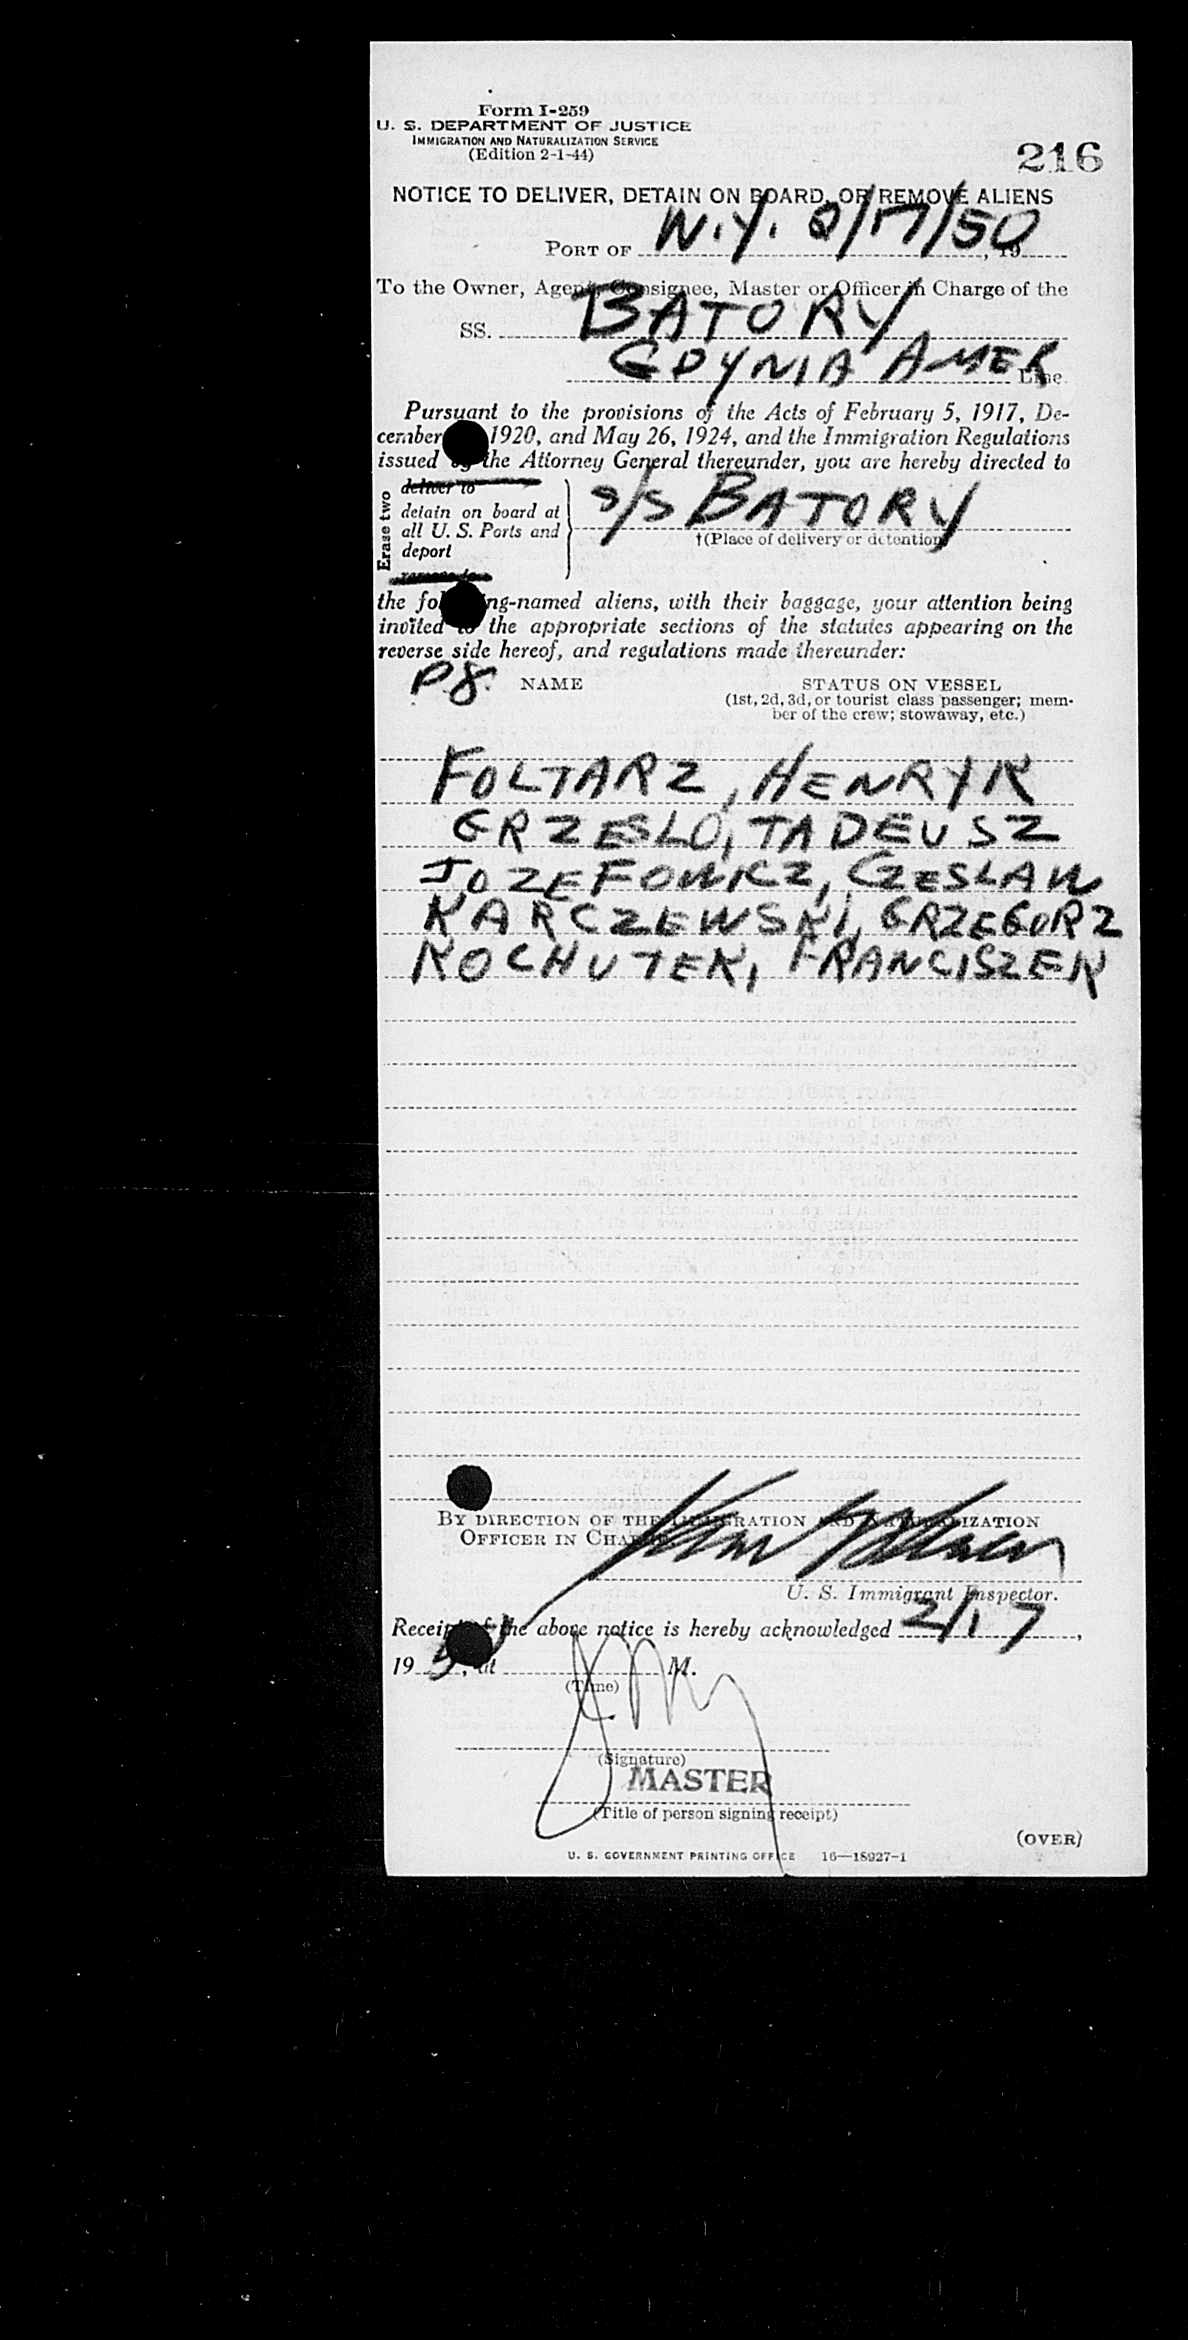 Form I-259
U. S. DEPARTMENT OF JUSTICE
IMMIGRATION AND NATURALIZATION SERVICE
(Edition 2-1-44)
216
NOTICE TO DELIVER, DETAIN ON BOARD, OR REMOVE ALIENS
PORT OF N.Y. 2/17/50, 19
To the Owner, Agent, Consignee, Master or Officer in Charge of the
SS. BATORY
GDYNIA AMER Line
Pursuant to the provisions of the Acts of February 5, 1917, De-
cember 1920, and May 26, 1924, and the Immigration Regulations
issued by the Attorney General thereunder, you are hereby directed to
Erase two
deliver to
detain on board at
all U. S. Ports and
deport
remove to
S/S BATORY
†(Place of delivery or detention)
the following-named aliens, with their baggage, your attention being
invited to the appropriate sections of the statutes appearing on the
reverse side hereof, and regulations made thereunder:
P.8. NAME STATUS ON VESSEL
(1st, 2d, 3d, or tourist class passenger; mem-
ber of the crew; stowaway, etc.)
FOLTARZ, HENRYK
GRZESLO, TADEUSZ
JOZEFOWICZ, CZESLAW
KARCZEWSKI, GRZEGORZ
KOCHUTEK, FRANCISZEK
BY DIRECTION OF THE IMMIGRATION AND NATURALIZATION
OFFICER IN CHARGE
U. S. Immigrant Inspector.
Receipt of the above notice is hereby acknowledged 2/17,
19 5, at M.
(Time)
(Signature)
MASTER
(Title of person signing receipt)
(OVER)
U. S. GOVERNMENT PRINTING OFFICE 16—18927-1